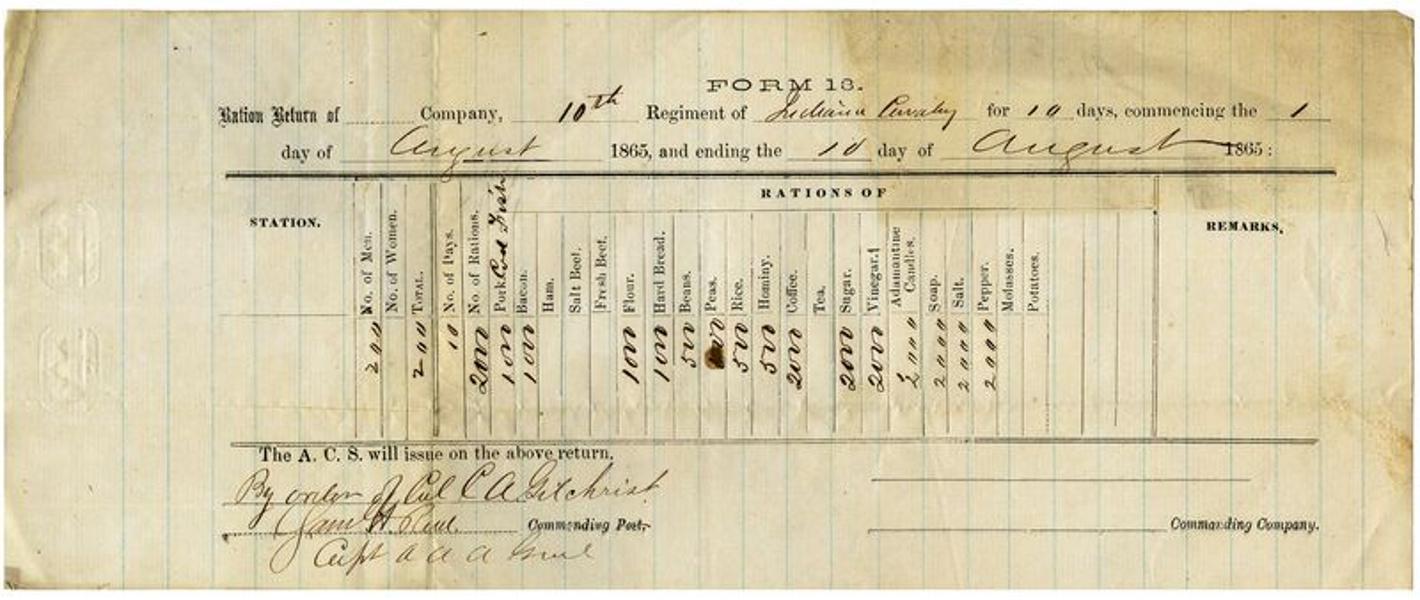 FORM 13.
Ration Return of Company, 10th Regiment of Indiana Cavalry for 10 days, commencing the 1
day of August 1865, and ending the 10 day of August 1865:
RATIONS OF
STATION. No. of Men. No. of Women. TOTAL. No. of Days. No. of Rations. Pork Cod Fish Bacon. Ham. Salt Beef. Fresh Beef. Flour. Hard Bread. Beans. Peas. Rice. Hominy. Coffee. Tea. Sugar. Vinegar. Adamantine Candles. Soap. Salt. Pepper. Molasses. Potatoes. REMARKS.
200 200 10 2000 1000 1000 1000 1000 500 500 500 2000 2000 2000 2000 2000 2000 2000
The A. C. S. will issue on the above return.
By order of Col C A Gilchrist
Commanding Post. Commanding Company.
Capt a a a Genl